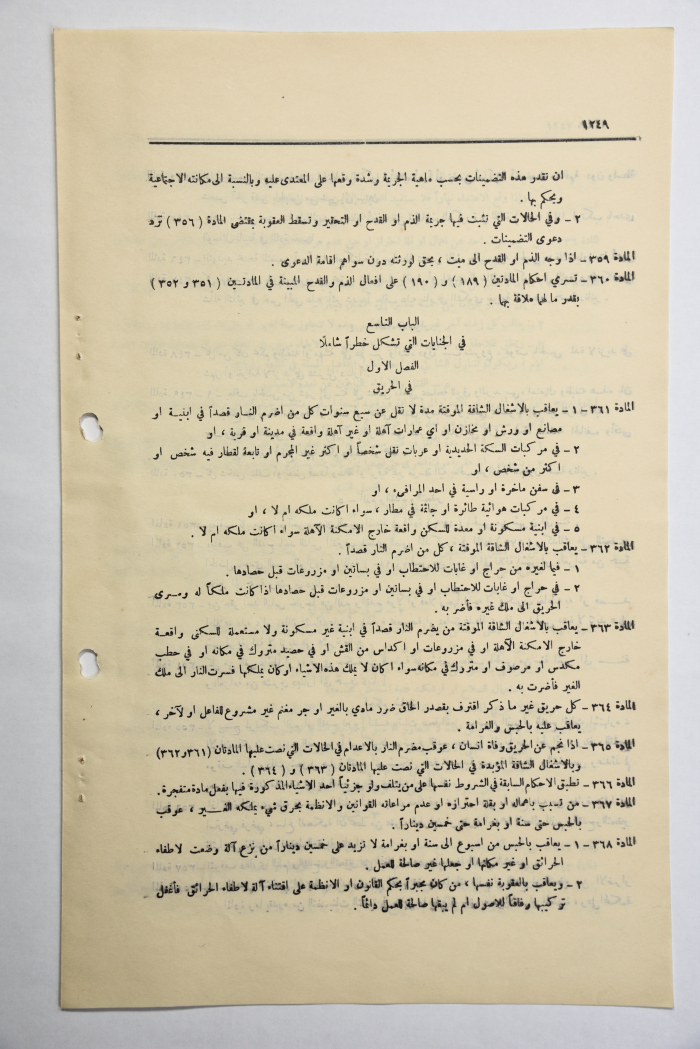 ١٢٤٩
ان نقدر هذه التضمينات بحسب ماهية الجريمة وشدة وقعها على المعتدى عليه وبالنسبة الى مكانته الاجتماعية
ويحكم بها .
٢ - وفي الحالات التي نثبت فيها جريمة الذم او القدح او التحقير وتسقط العقوبة بمقتضى المادة ( ٣٥٦ ) ترد
دعوى التضمينات .
المادة ٣٥٩ - اذا وجه الذم او القدح الى ميت ، يحق لورثته دون سواهم اقامة الدعوى .
المادة ٣٦٠ - تسري احكام المادتين ( ١٨٩ ) و ( ١٩٠ ) على افعال الذم والقدح المبينة في المادتــين ( ٣٥١ و ٣٥٢ )
بقدر ما لهما علاقة بها .
الباب التاسع
في الجنايات التي تشكل خطراً شاملًا
الفصل الاول
في الحريق
المادة ٣٦١ - ١ - يعاقب بالاشغال الشاقة الموقتة مدة لا نقل عن سبع سنوات كل من اضرم النـار قصداً في ابنيـة او
مصانع او ورش او مخازن او اي عمارات آهلة او غير آهلة واقعة في مدينة او قرية ، او
٢ - في مركبات السكة الحديدية او عربات نقل شخصاً او اكثر غير المجرم او تابعة لقطار فيه شخص او
اكثر من شخص ، او
٣ - في سفن ماخرة او راسية في احد المرافىء ، او
٤ - في مركبات هوائية طائرة او جاثمة في مطار ، سواء اكانت ملكه ام لا ، او
٥ - في ابنية مسكونة او معدة للسكن واقعة خارج الامكنة الآهلة سواء اكانت ملكه ام لا .
المادة ٣٦٢ - يعاقب بالاشغال الشاقة الموقتة ، كل من اضرم النار قصداً .
١ - فيما لغيره من حراج او غابات للاحتطاب او في بساتين او مزروعات قبل حصادها .
٢ - في حراج او غابات للاحتطاب او في بساتين او مزروعات قبل حصادها اذا كانت ملكاً له وسرى
الحريق الى ملك غيره فأضر به .
المادة ٣٦٣ - يعاقب بالاشغال الشاقة الموقتة من يضرم النار قصداً في ابنية غير مسكونة ولا مستعملة للسكنى واقعـة
خارج الامكنة الآهلة او في مزروعات او اكداس من القش او في حصيد متروك في مكانه او في حطب
مكدس او مرصوف او متروك في مكانه سواء اكان لا يملك هذه الاشياء او كان يملكها فسرت النار الى ملك
الغير فأضرت به .
المادة ٣٦٤ - كل حريق غير ما ذكر اقترف بقصدر الحاق ضرر مادي بالغير او جر مغنم غير مشروع للفاعل او لآخر ،
يعاقب عليه بالحبس والغرامة .
المادة ٣٦٥ - اذا نجم عن الحريق وفاة انسان ، عوقب مضرم النار بالاعدام في الحالات التي نصت عليها المادتان (٣٦١ و٣٦٢)
وبالاشغال الشاقة المؤبدة في الحالات التي نصت عليها المادتان ( ٣٦٣ ) و ( ٣٦٤ ) .
المادة ٣٦٦ - تطبق الاحكام السابقة في الشروط نفسها على من يتلف ولو جزئياً احد الاشياء المذكورة فيها بفعل مادة متفجرة .
المادة ٣٦٧ - من تسبب باهماله او بقلة احترازه او عدم مراعاته القوانين والانظمة بحرق شيء يملكه الغـــير ، عوقب
بالحبس حتى سنة او بغرامة حتى خمسين ديناراً .
المادة ٣٦٨ - ١ - يعاقب بالحبس من اسبوع الى سنة او بغرامة لا تزيد على خمسين ديناراً من نزع آلة وضعت لاطفاء
الحرائق او غير مكانها او جعلها غير صالحة للعمل .
٢ - ويعاقب بالعقوبة نفسها ، من كان مجبراً بحكم القانون او الانظمة على اقتناء آلة لاطفاء الحرائق فأغفل
تركيبها وفاقاً للاصول ام لم يبقها صالحة للعمل دائماً .